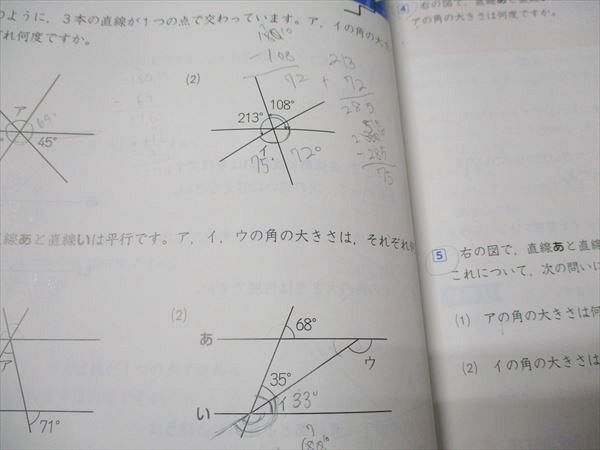 のように，3本の直線が1つの点で交わっています。ア，イの角の大き
ぞれ何度ですか。
ア
45°
(2)
180
- 108
72
213
+ 72
285
- 285
75
108°
213°
イ
75°
72°
線あと直線いは平行です。ア，イ，ウの角の大きさは，それぞれ何
ア
71°
(2)
あ
68°
35°
ウ
イ 33°
い
4 右の図で，直線
アの角の大きさは何度ですか。
5 右の図で，直線あと直線
これについて，次の問いに
(1) アの角の大きさは何
(2) イの角の大きさは